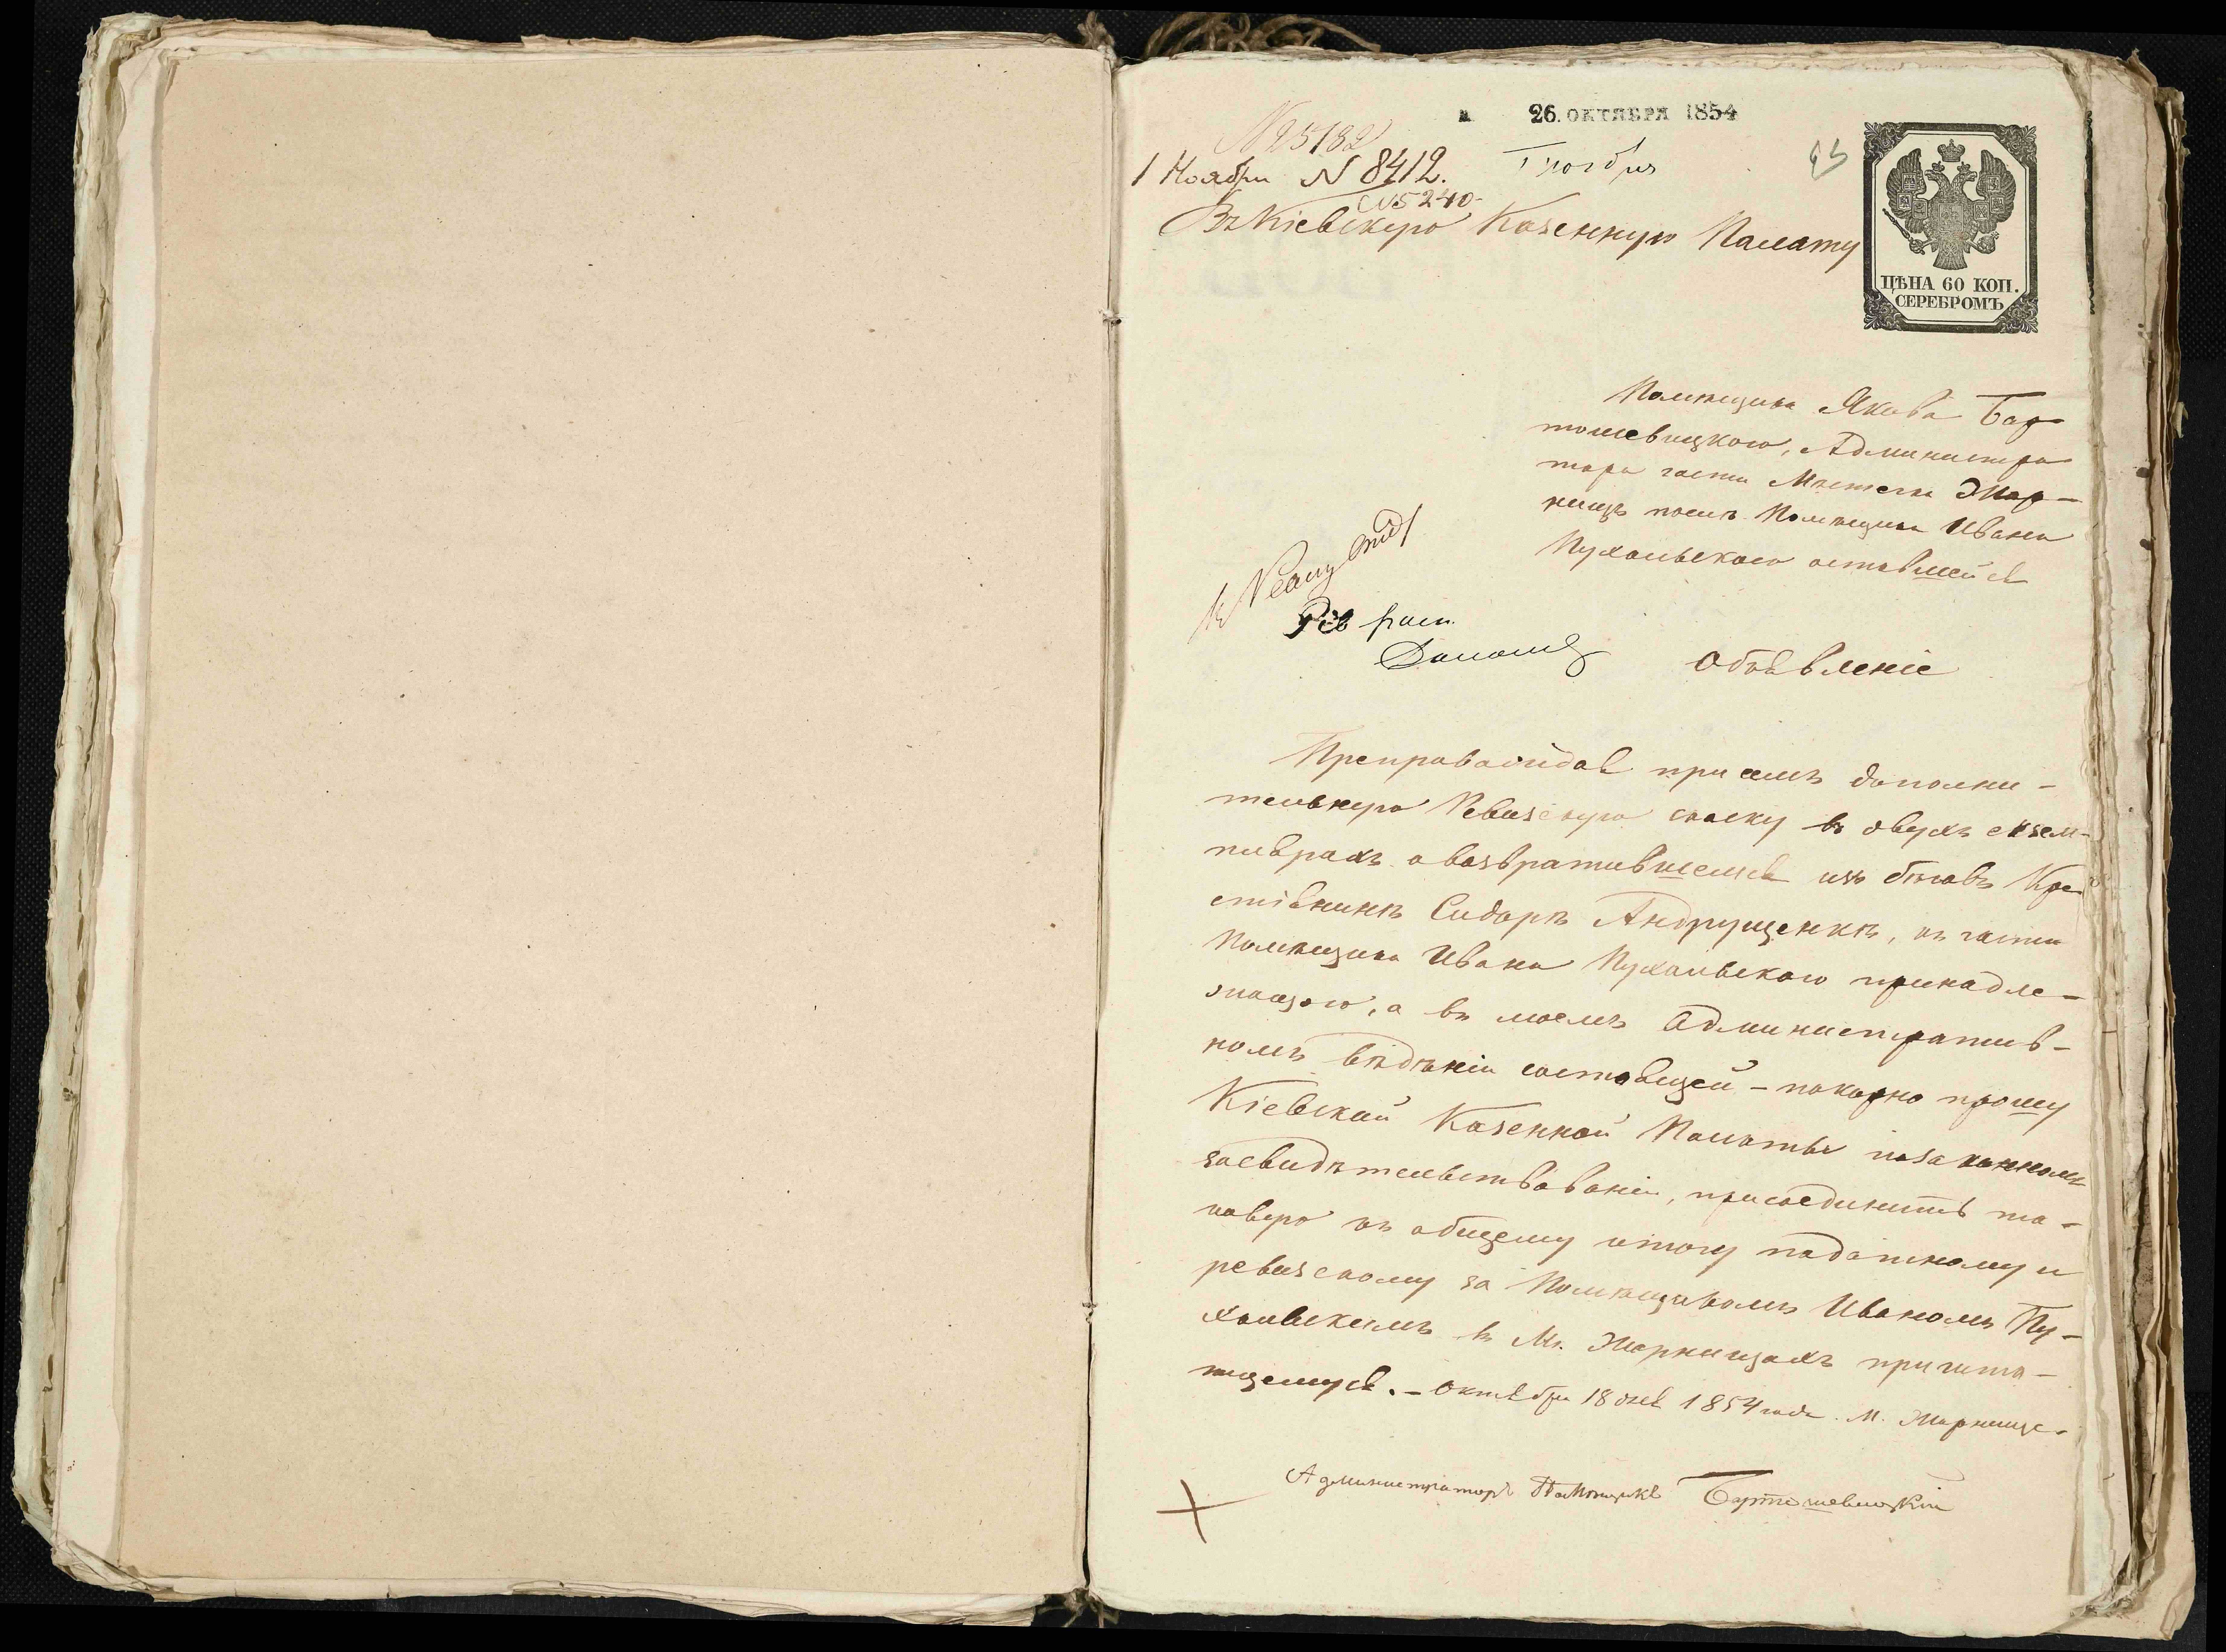 26 ОКТЯБРЯ 1854
N 25182
1 Ноября N 8412. 1 ноября
N 5240
Въ Кіевскую Казенную Палату
ЦѢНА 60 КОП.
СЕРЕБРОМЪ
Помѣщика Якова Бар-
тошевицкого, Администра
тора части Мѣстечка Жор-
нищъ послѣ Помѣщика Ивана
Пухальского оставшейся
Объявленіе
Препровождая при семъ дополни-
тельную Ревизскую сказку въ двухъ екзем-
плярахъ о возвратившемся изъ бѣговъ Кре
стіянинѣ Сидорѣ Андрущенкѣ, къ части
Помѣщика Ивана Пухальского принадле-
жащого, а въ моемъ Административ-
номъ вѣдѣніи состоящей - покорно прошу
Кіевской Казенной Палаты по законномъ
засвидѣтельствованіи, присоединить та-
ковую къ общему итогу податному и
ревизскому за Помѣщикомъ Иваномъ Пу-
хальскимъ въ М. Жорнищахъ причита-
ющемуся. - Октября 18 дня 1854 года. М. Жорнище.
Администраторъ Помѣщикъ Бартошевицкій